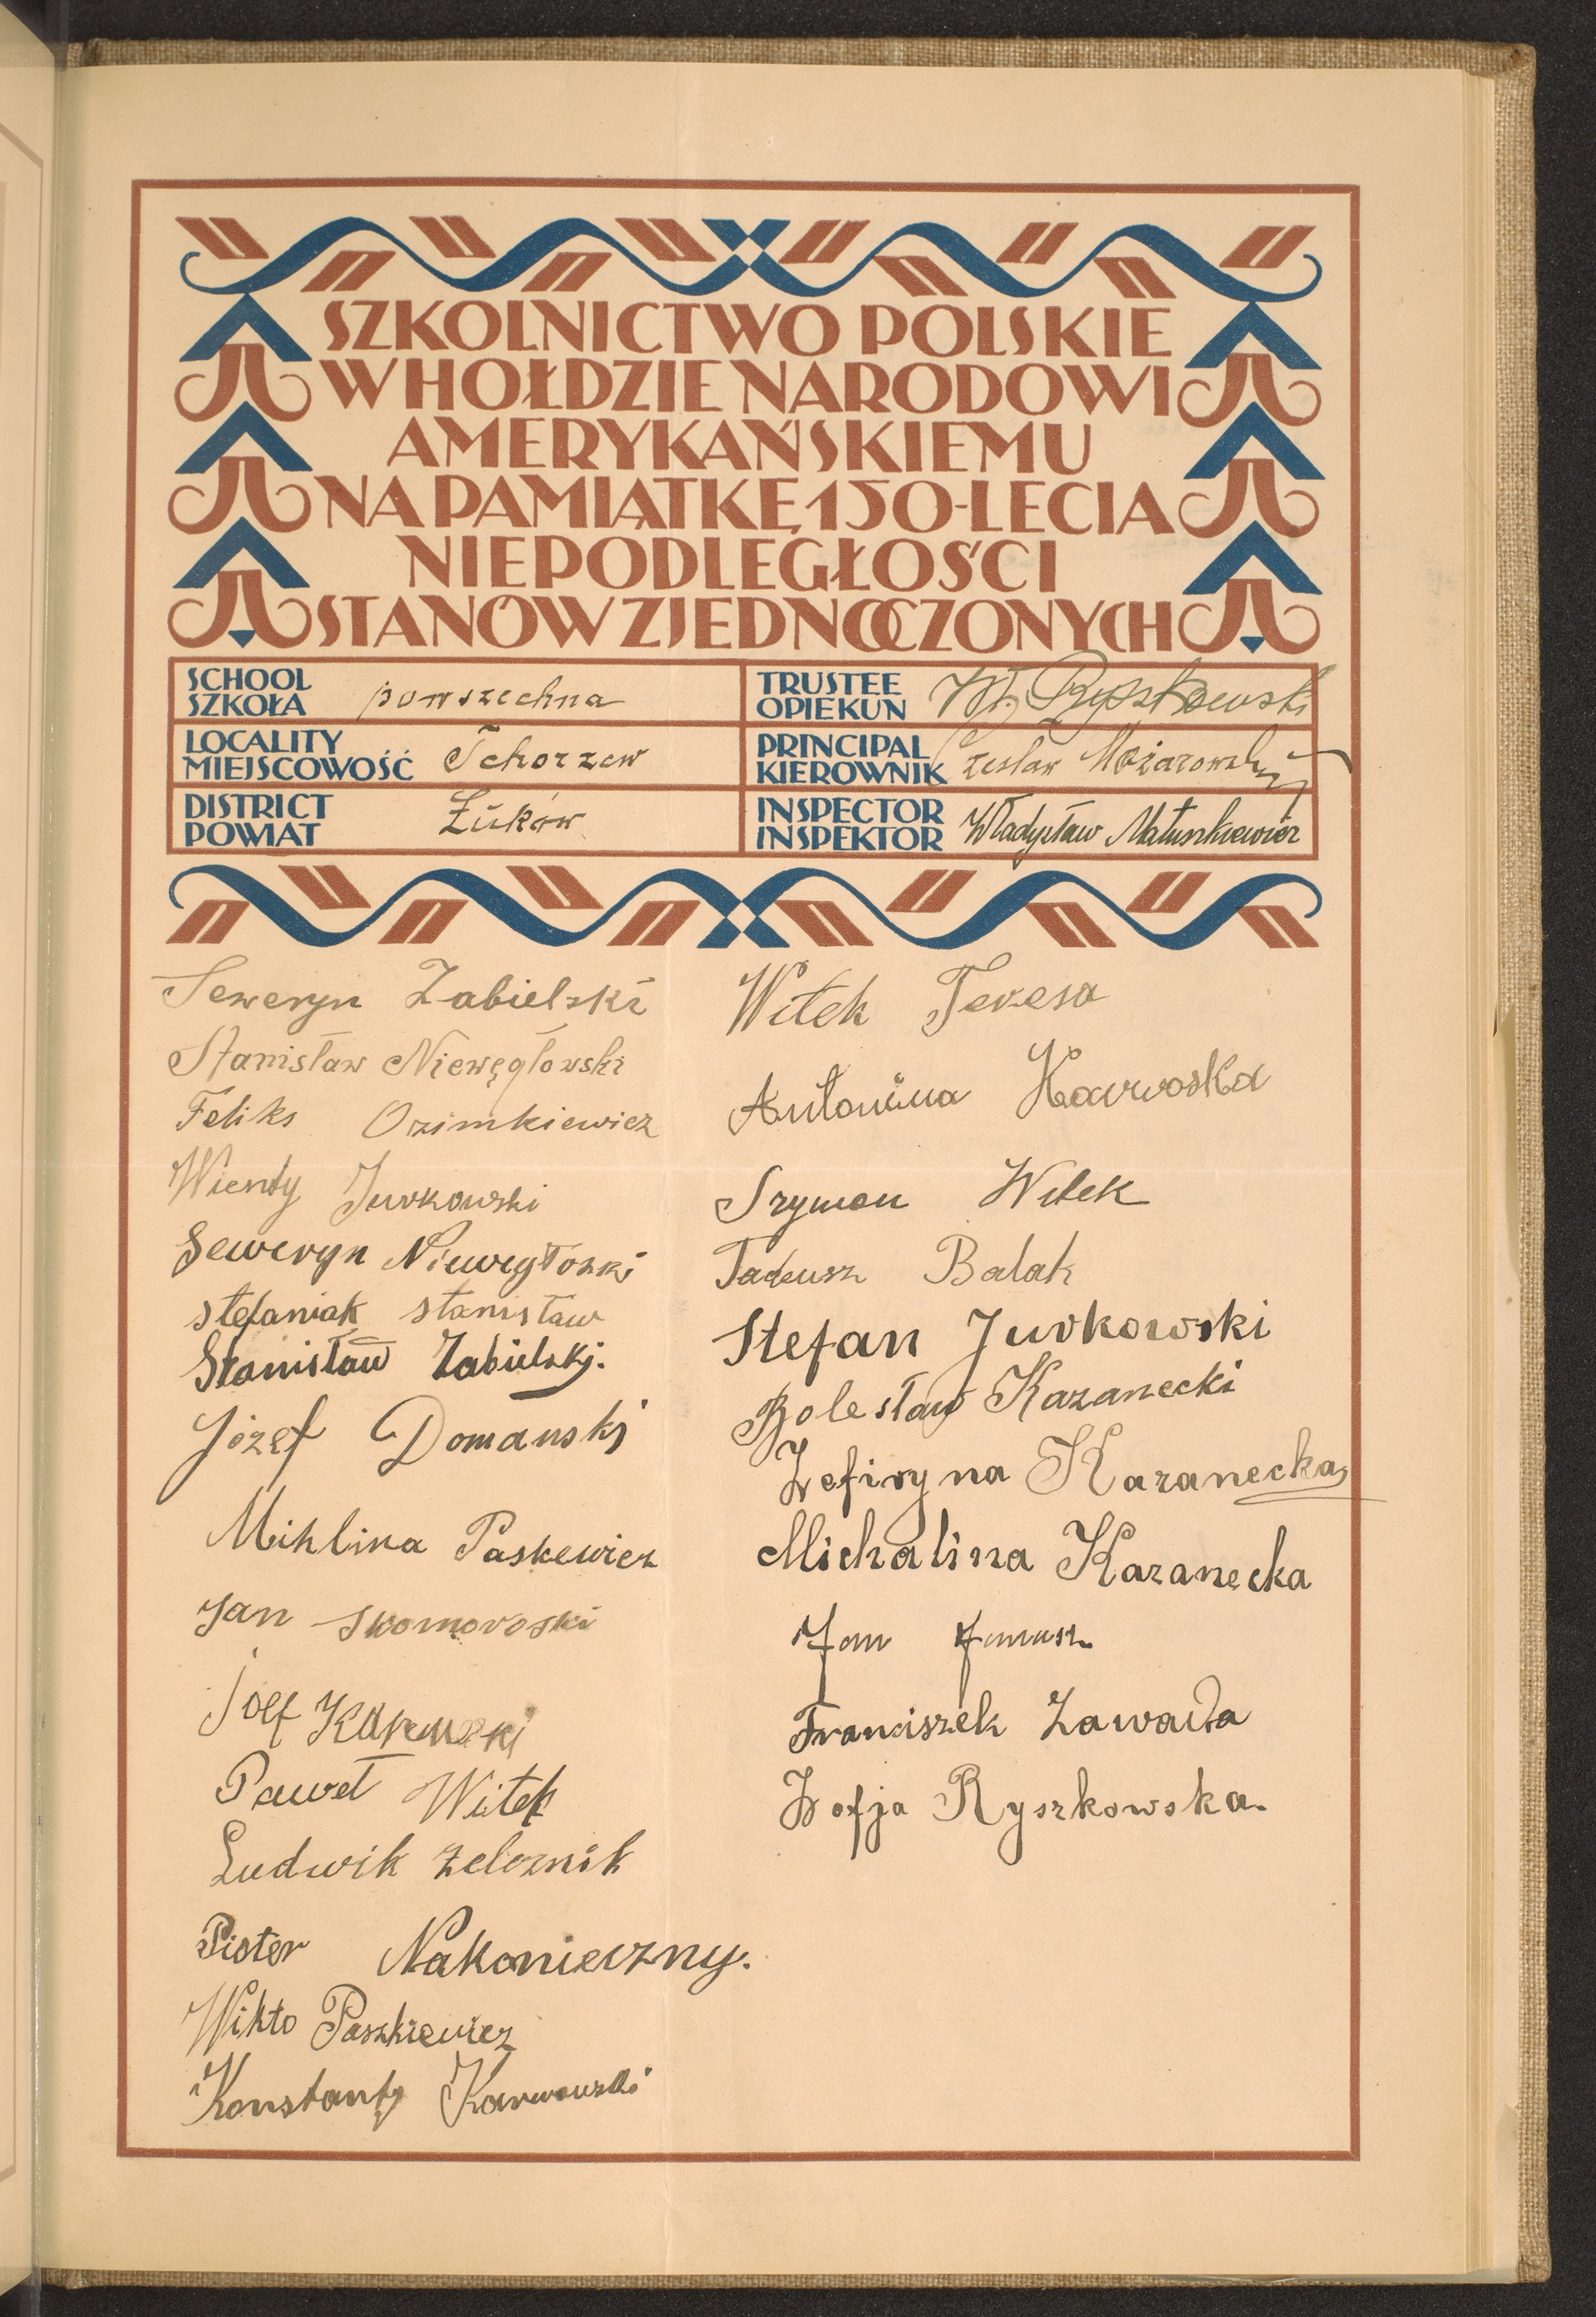 SZKOLNICTWO POLSKIE
W HOŁDZIE NARODOWI
AMERYKAŃSKIEMU
NA PAMIĄTKĘ 150-LECIA
NIEPODLEGŁOŚCI
STANÓW ZJEDNOCZONYCH
SCHOOL
SZKOŁA powszechna
TRUSTEE
OPIEKUN Wł. Ryszkowski
LOCALITY
MIEJSCOWOŚĆ Tchorzew
PRINCIPAL
KIEROWNIK Czesław Możarowski
DISTRICT
POWIAT Łuków
INSPECTOR
INSPEKTOR Władysław Matuszkiewicz
Seweryn Zabielski
Stanisław Niewęgłowski
Feliks Ozimkiewicz
Wienty Jurkowski
Seweryn Niewegłoski
Stefaniak Stanisław
Stanisław Zabielski.
Józef Domanski
Mihlina Paskewicz
Jan Skomoroski
Jozf
Paweł Witek
Ludwik Zeleznik
Pioter Nakonieczny.
Wikto Paszkiewicz
Konstanty Karwowski
Witek Teresa
Antonina Karwoska
Szymon Witek
Tadeusz Balak
Stefan Jurkowski
Bolesław Kazanecki
Zefiryna Kazanecka
Michalina Kazanecka
Jan Janusz
Franciszek Zawada
Zofja Ryszkowska.